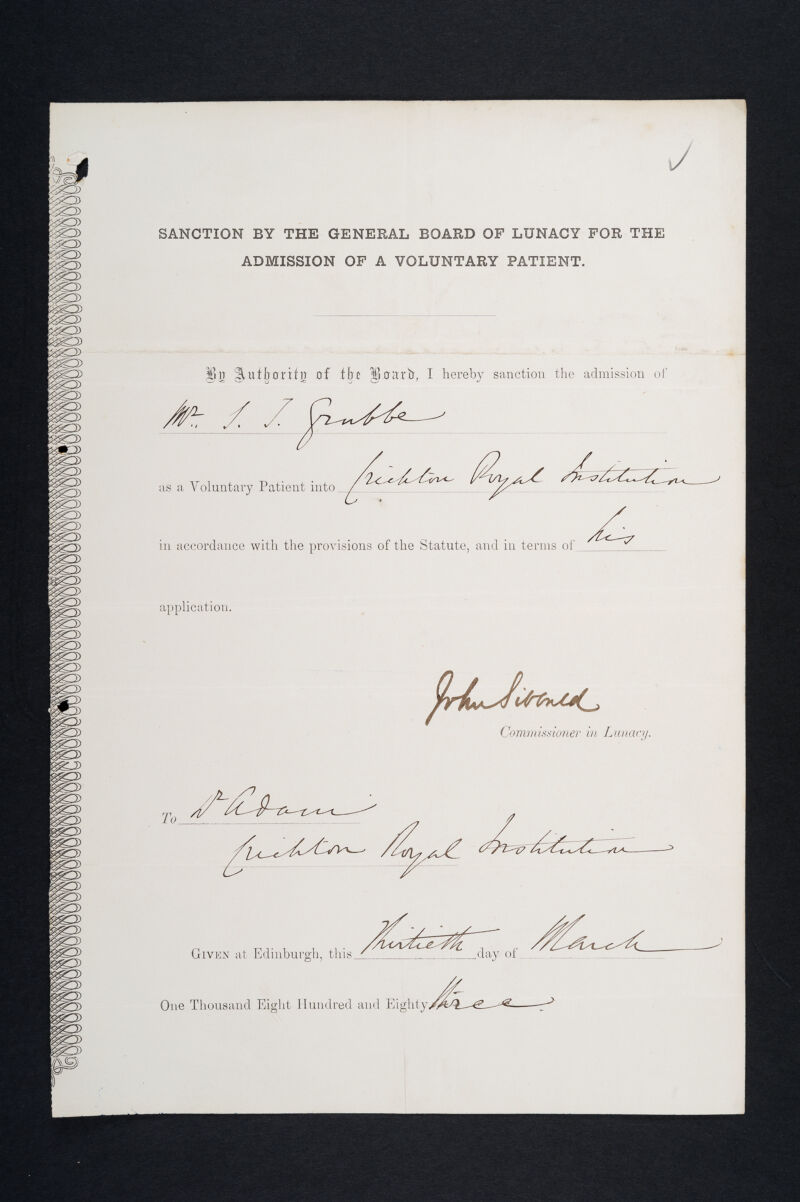 SANCTION BY THE GENERAL BOARD OF LUNACY FOR THE
ADMISSION OF A VOLUNTARY PATIENT.
By Authority of the Board, I hereby sanction the admission of
Mr. S. T. Grubbe
as a Voluntary Patient into Crichton Royal Institution
in accordance with the provisions of the Statute, and in terms of his
application.
John Sibbald
Commissioner in Lunacy.
To Dr Adam
Crichton Royal Institution
GIVEN at Edinburgh, this Thirtieth day of March
One Thousand Eight Hundred and Eighty three.